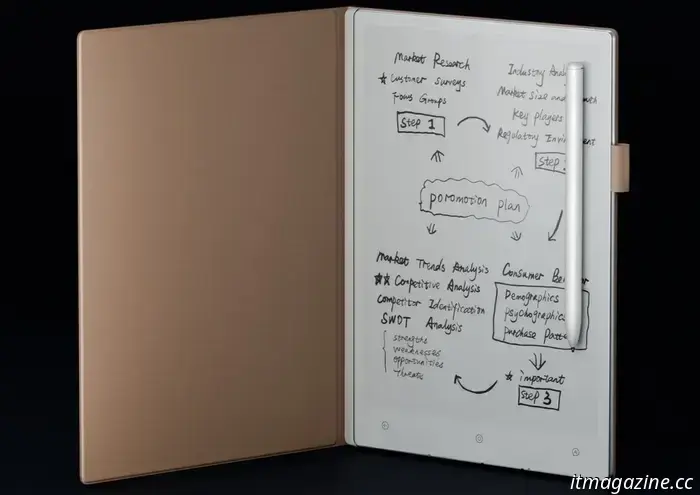 Market Research
★ Customer surveys
Focus Groups
Step 1
Industry Anal
Market size and th
Key players
Regulatory Envi ent
Step
poromotion plan
Market Trends Analysis
★★ Competitive Analysis
Competitor Identification
SWOT Analysis
strengths
weaknesses
opportunities
Threats
Consumer Be r
Demographics
psychographics
purchase Patt
★ important
Step 3
itmagazine.cc